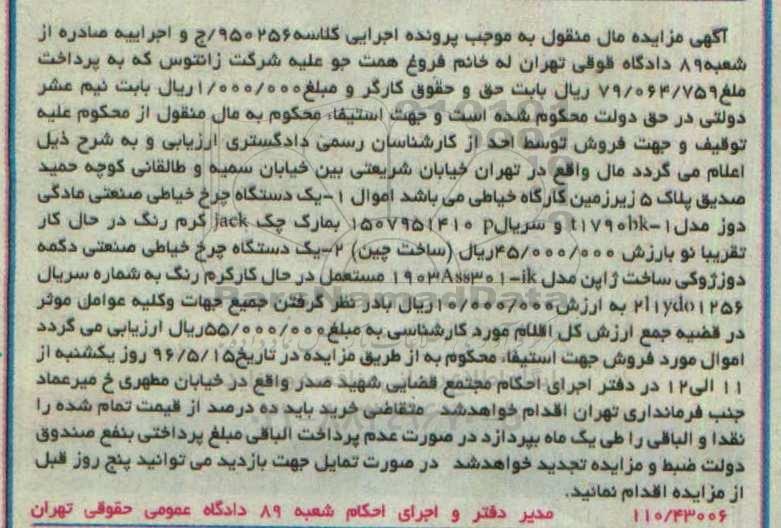 آگهی مزایده مال منقول به موجب پرونده اجرایی کلاسه۹۵۰۲۵۶/ج و اجراییه صادره از
شعبه۸۹ دادگاه قوقی تهران له خانم فروغ همت جو علیه شرکت زانتوس که به پرداخت
ملغ۷۹/۰۶۴/۷۵۹ ریال بابت حق و حقوق کارگر و مبلغ۱/۰۰۰/۰۰۰ریال بابت نیم عشر
دولتی در حق دولت محکوم شده است و جهت استیفاء محکوم به مال منقول از محکوم علیه
توقیف و جهت فروش توسط احد از کارشناسان رسمی دادگستری ارزیابی و به شرح ذیل
اعلام می گردد مال واقع در تهران خیابان شریعتی بین خیابان سمیه و طالقانی کوچه حمید
صدیق پلاک ۵ زیرزمین کارگاه خیاطی می باشد اموال ۱-یک دستگاه چرخ خیاطی صنعتی مادگی
دوز مدل۱-t۱۷۹۰bk و سریالp ۱۵۰۷۹۵۱۴۱۰ بمارک چک jack کرم رنگ در حال کار
تقریبا نو بارزش ۴۵/۰۰۰/۰۰۰ریال (ساخت چین) ۲-یک دستگاه چرخ خیاطی صنعتی دکمه
دوزژوکی ساخت ژاپن مدل ۱۹۰۳Ass۳۰۱-ik مستعمل در حال کارکرم رنگ به شماره سریال
۲l۱ydo۱۲۵۶ به ارزش ۱۰/۰۰۰/۰۰۰ریال بادر نظر گرفتن جمیع جهات وکلیه عوامل موثر
در قضیه جمع ارزش کل اقلام مورد کارشناسی به مبلغ۵۵/۰۰۰/۰۰۰ریال ارزیابی می گردد
اموال مورد فروش جهت استیفاء محکوم به از طریق مزایده در تاریخ۹۶/۵/۱۵ روز یکشنبه از
۱۱ الی۱۲ در دفتر اجرای احکام مجتمع قضایی شهید صدر واقع در خیابان مطهری خ میرعماد
جنب فرمانداری تهران اقدام خواهدشد متقاضی خرید باید ده درصد از قیمت تمام شده را
نقدا و الباقی را طی یک ماه بپردازد در صورت عدم پرداخت الباقی مبلغ پرداختی بنفع صندوق
دولت ضبط و مزایده تجدید خواهدشد در صورت تمایل جهت بازدید می توانید پنج روز قبل
از مزایده اقدام نمائید.
۱۱۰/۴۳۰۰۶ مدیر دفتر و اجرای احکام شعبه ۸۹ دادگاه عمومی حقوقی تهران
ParsNamadData